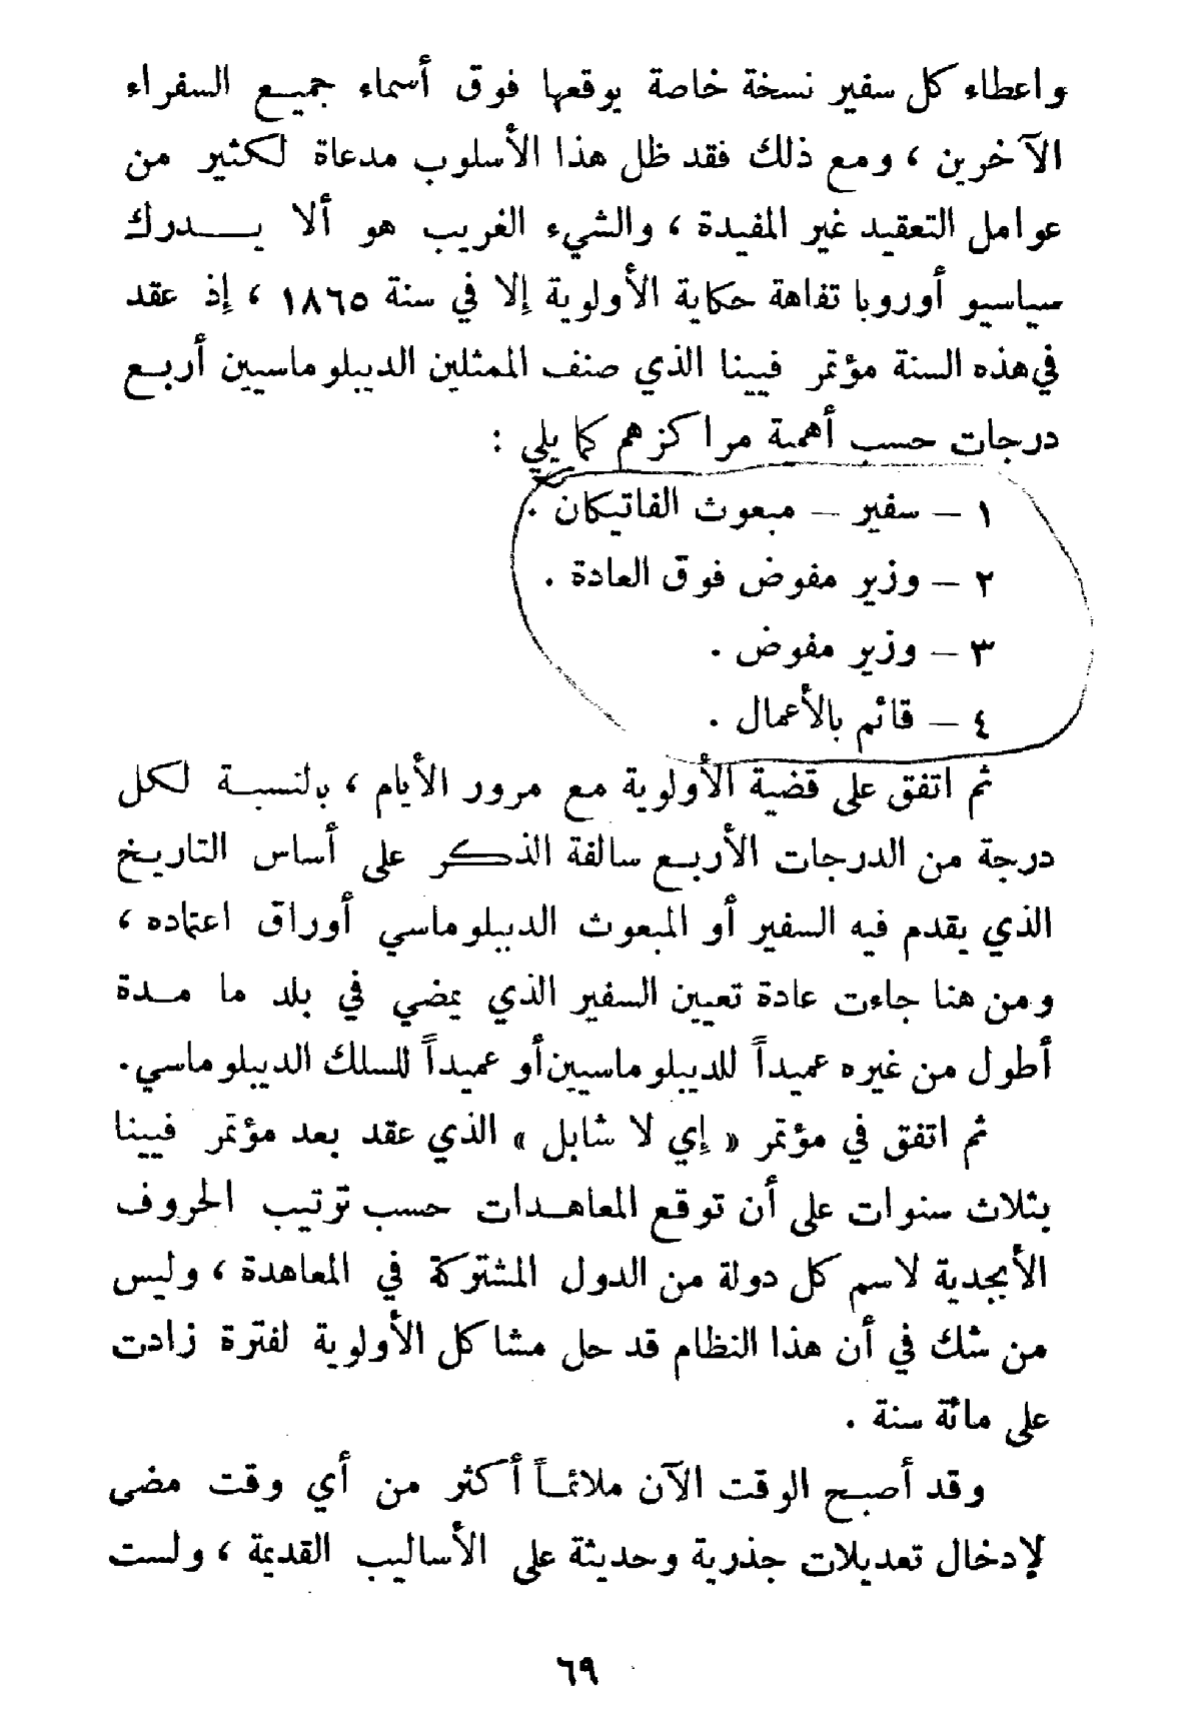 واعطاء كل سفير نسخة خاصة يوقعها فوق أسماء جميع السفراء
الآخرين ، ومع ذلك فقد ظل هذا الأسلوب مدعاة لكثير من
عوامل التعقيد غير المفيدة ، والشيء الغريب هو ألا يدرك
سياسيو أوروبا تفاهة حكاية الأولوية إلا في سنة ١٨٦٥ ، إذ عقد
في هذه السنة مؤتمر فيينا الذي صنف الممثلين الديبلوماسيين أربع
درجات حسب أهمية مراكزهم كما يلي :
١ – سفير – مبعوث الفاتيكان .
٢ – وزير مفوض فوق العادة .
٣ – وزير مفوض .
٤ – قائم بالأعمال .
ثم اتفق على قضية الأولوية مع مرور الأيام ، بالنسبة لكل
درجة من الدرجات الأربع سالفة الذكر على أساس التاريخ
الذي يقدم فيه السفير أو المبعوث الديبلوماسي أوراق اعتماده ،
ومن هنا جاءت عادة تعيين السفير الذي يمضي في بلد ما مدة
أطول من غيره عميداً للديبلوماسيين أو عميداً للسلك الديبلوماسي .
ثم اتفق في مؤتمر « إي لا شابل » الذي عقد بعد مؤتمر فيينا
بثلاث سنوات على أن توقع المعاهدات حسب ترتيب الحروف
الأبجدية لاسم كل دولة من الدول المشتركة في المعاهدة ، وليس
من شك في أن هذا النظام قد حل مشاكل الأولوية لفترة زادت
على مائة سنة .
وقد أصبح الوقت الآن ملائماً أكثر من أي وقت مضى
لإدخال تعديلات جذرية وحديثة على الأساليب القديمة ، ولست
٦٩